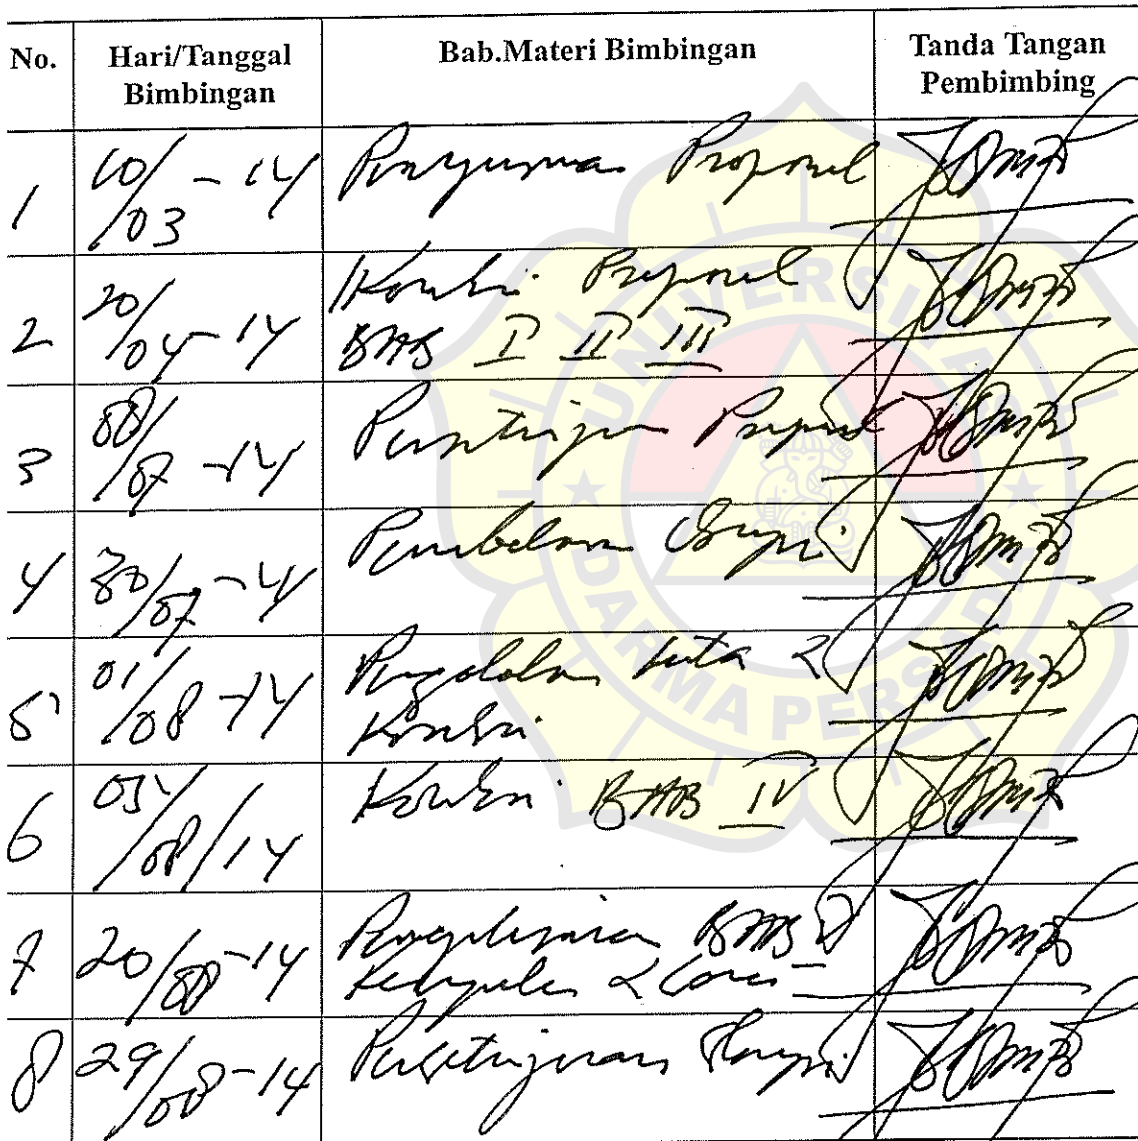 No. Hari/Tanggal Bimbingan Bab.Materi Bimbingan Tanda Tangan Pembimbing
1 10/03-14 Penyusunan Proposal
2 20/04-14 Koreksi Proposal
BAB I II III
3 08/07-14 Persetujuan Proposal
4 30/07-14 Skripsi
5 01/08-14 Pengolahan Data &
Koreksi
6 /08/14 Koreksi BAB IV
7 20/08-14 BAB V
Kesimpulan & Saran
8 29/08-14 Persetujuan Skripsi
UNIVERSITAS
DARMA PERSADA